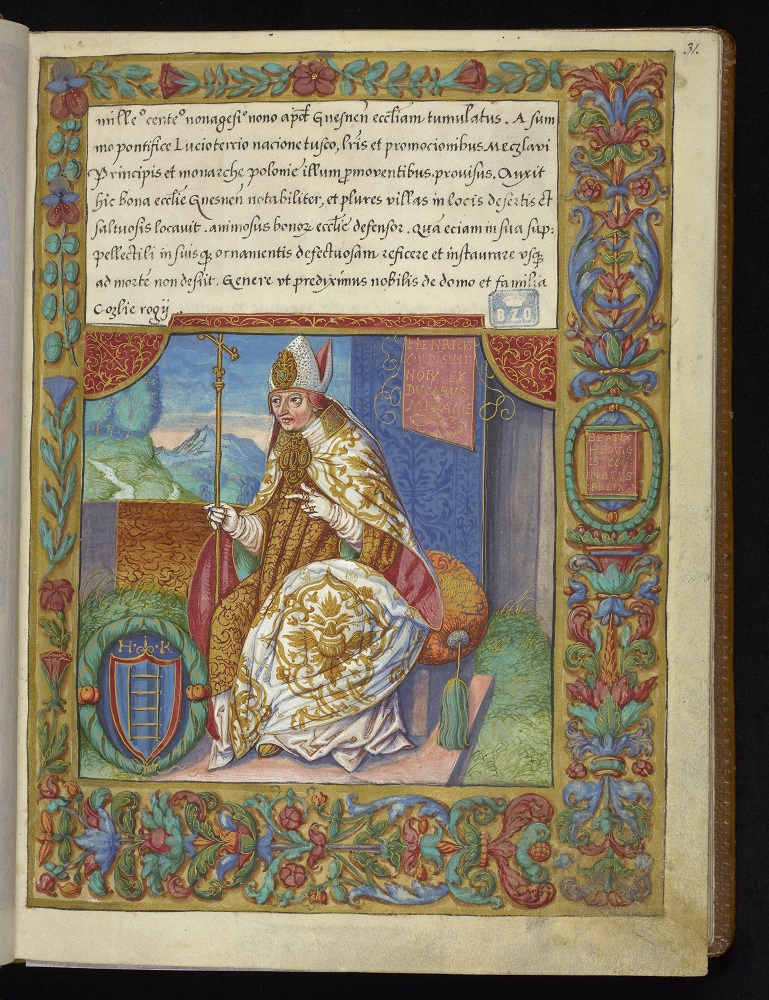 31.
mille° cente° nonagesi° nono apd Gnesnen eccliam tumulatus. A sum
mo pontifice Lucio tercio nacione tusco, lris et promocionibus Meczlavi
Principis et monarche polonie illum pmoventibus. provisus. Auxit
hic bona ecclie Gnesnen notabiliter, et plures villas in locis desertis et
saltuosis locavit. animosus bonoꝝ ecclie defensor. Quā eciam in sua sup:
pellectili in suisqꝫ ornamentis defectuosam reficere et instaurare vsqꝫ
ad mortē non desiit. Genere vt prediximus nobilis de domo et familia
Cozlie rogij
B.Z.O.
HENRIC
ORDIS MI
NOR EX
BEATE
HEDVIG
NATVS
FELIX
H K